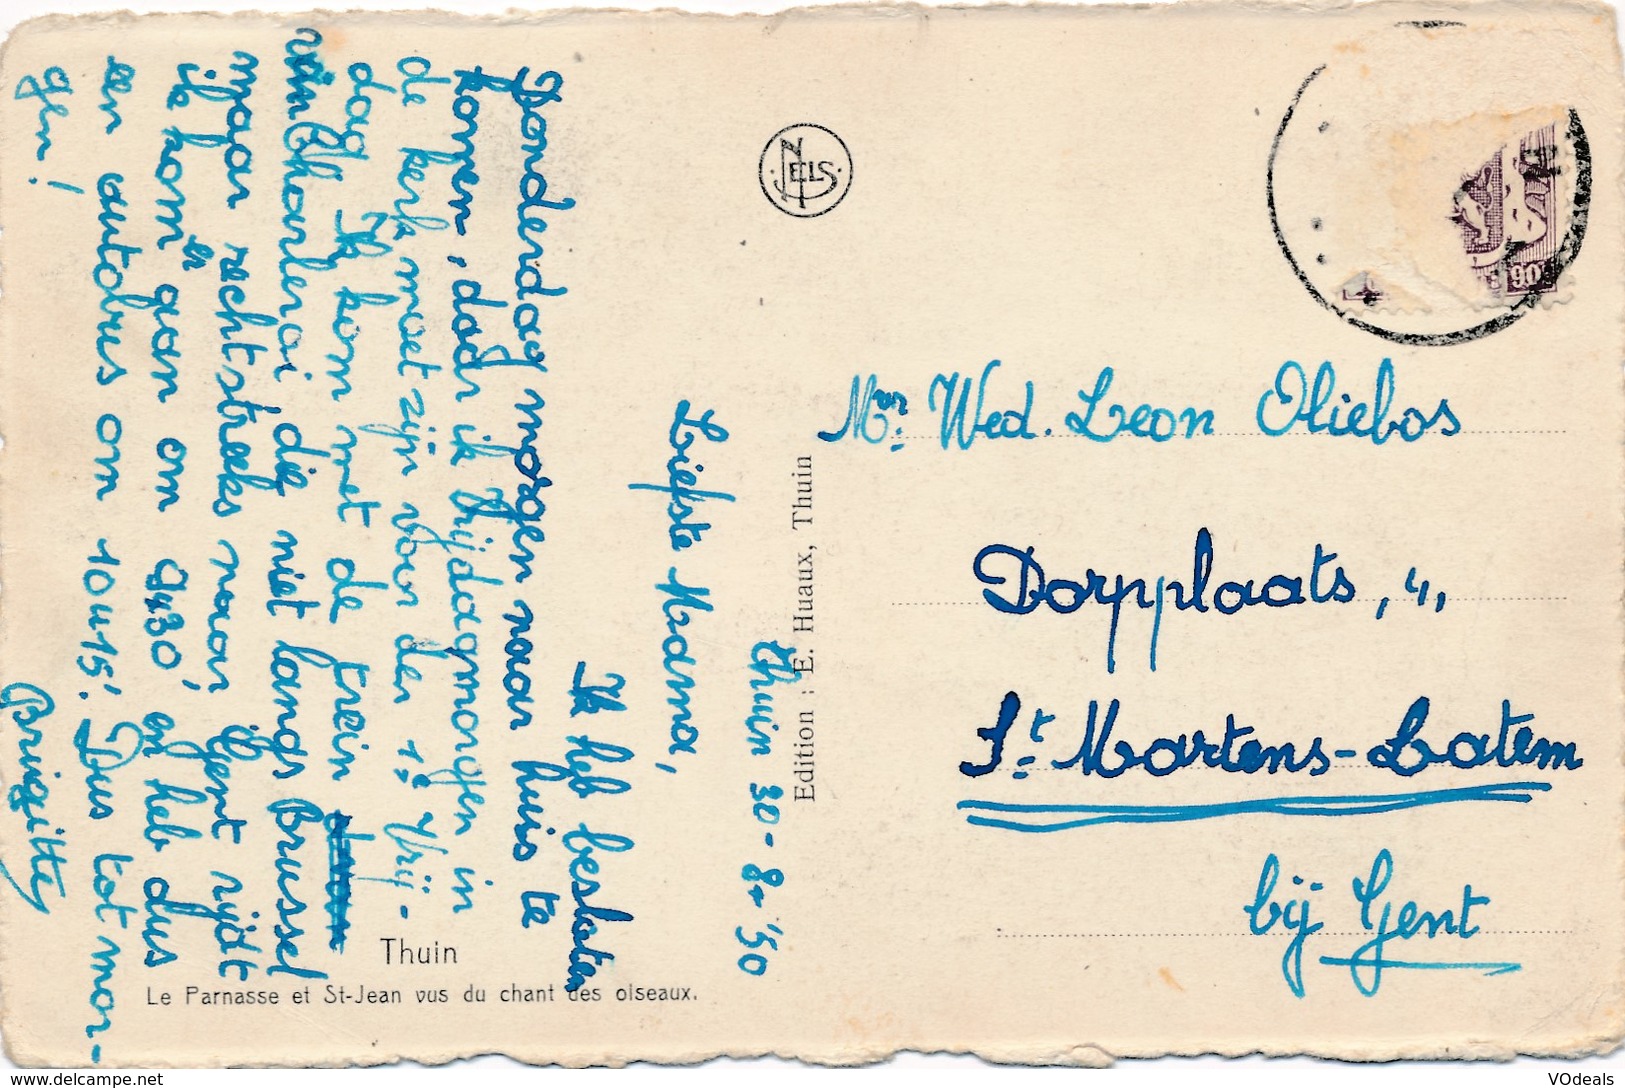 Thuin 30-8-'50
Liefste Mama,
Ik heb besloten
Donderdag morgen naar huis te
komen, daar ik Vrijdagmorgen in
de kerk moet zijn voor den 1e Vrij-
dag. Ik kom met de trein
van Charleroi die niet langs Brussel
maar rechtstreeks naar Gent rijdt
ik kom er aan om 9u30' en heb dus
een autobus om 10u15'. Dus tot mor-
gen!
Brigitte
NELS
Edition : E. Huaux, Thuin
Thuin
Le Parnasse et St-Jean vus du chant des oiseaux.
90c
Mvr. Wed. Leon Oliebos
Dorpplaats, 4,
St. Martens-Latem
bij Gent
https://www.delcampe.net
VOdeals